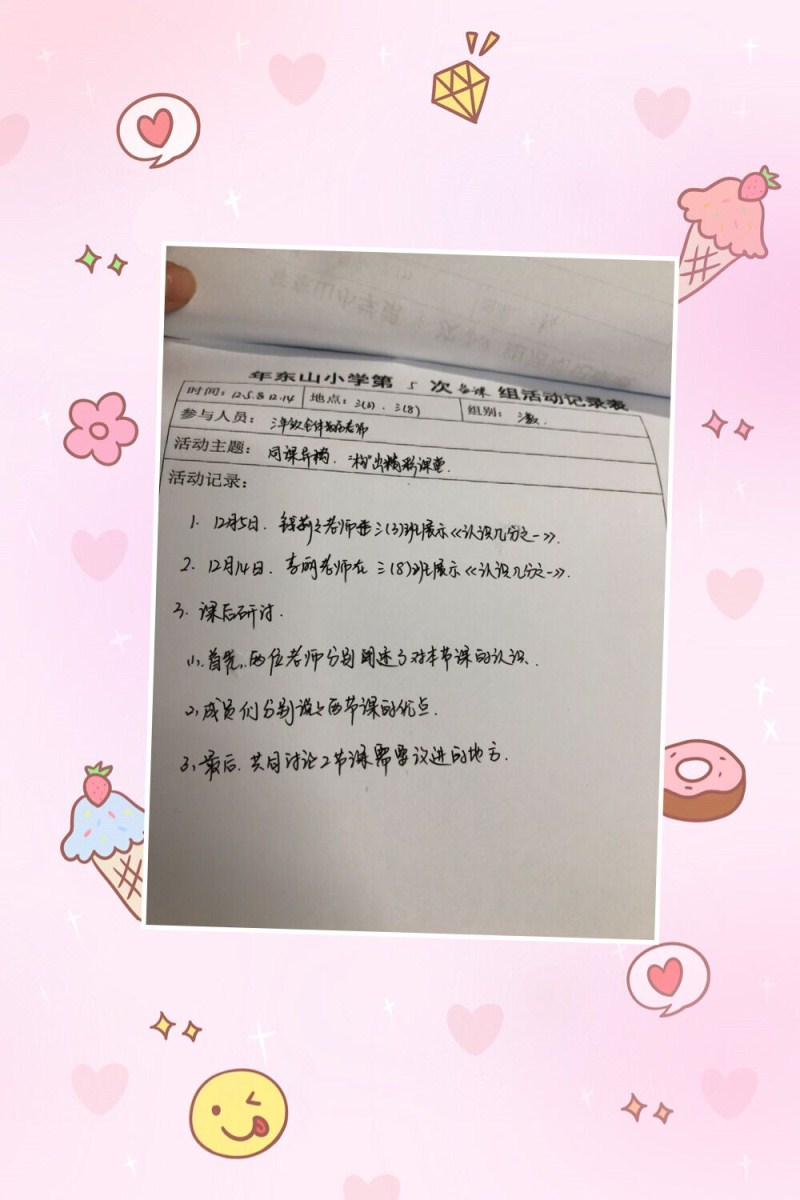 年东山小学第 5 次备课 组活动记录表
时间: 12.5.8 12.14 地点: 三(3)、三(8) 组别: 三数
参与人员: 三年级全体数学老师
活动主题: 同课异构、“构”出精彩课堂.
活动记录:
1. 12月5日. 老师在三(3)班展示《认识几分之一》.
2. 12月14日. 李丽老师在三(8)班展示《认识几分之一》.
3. 课后研讨.
(1)、首先,两位老师分别阐述了对本节课的认识.
(2)、成员们分别说了两节课的优点.
(3)、最后. 共同讨论2节课需要改进的地方.